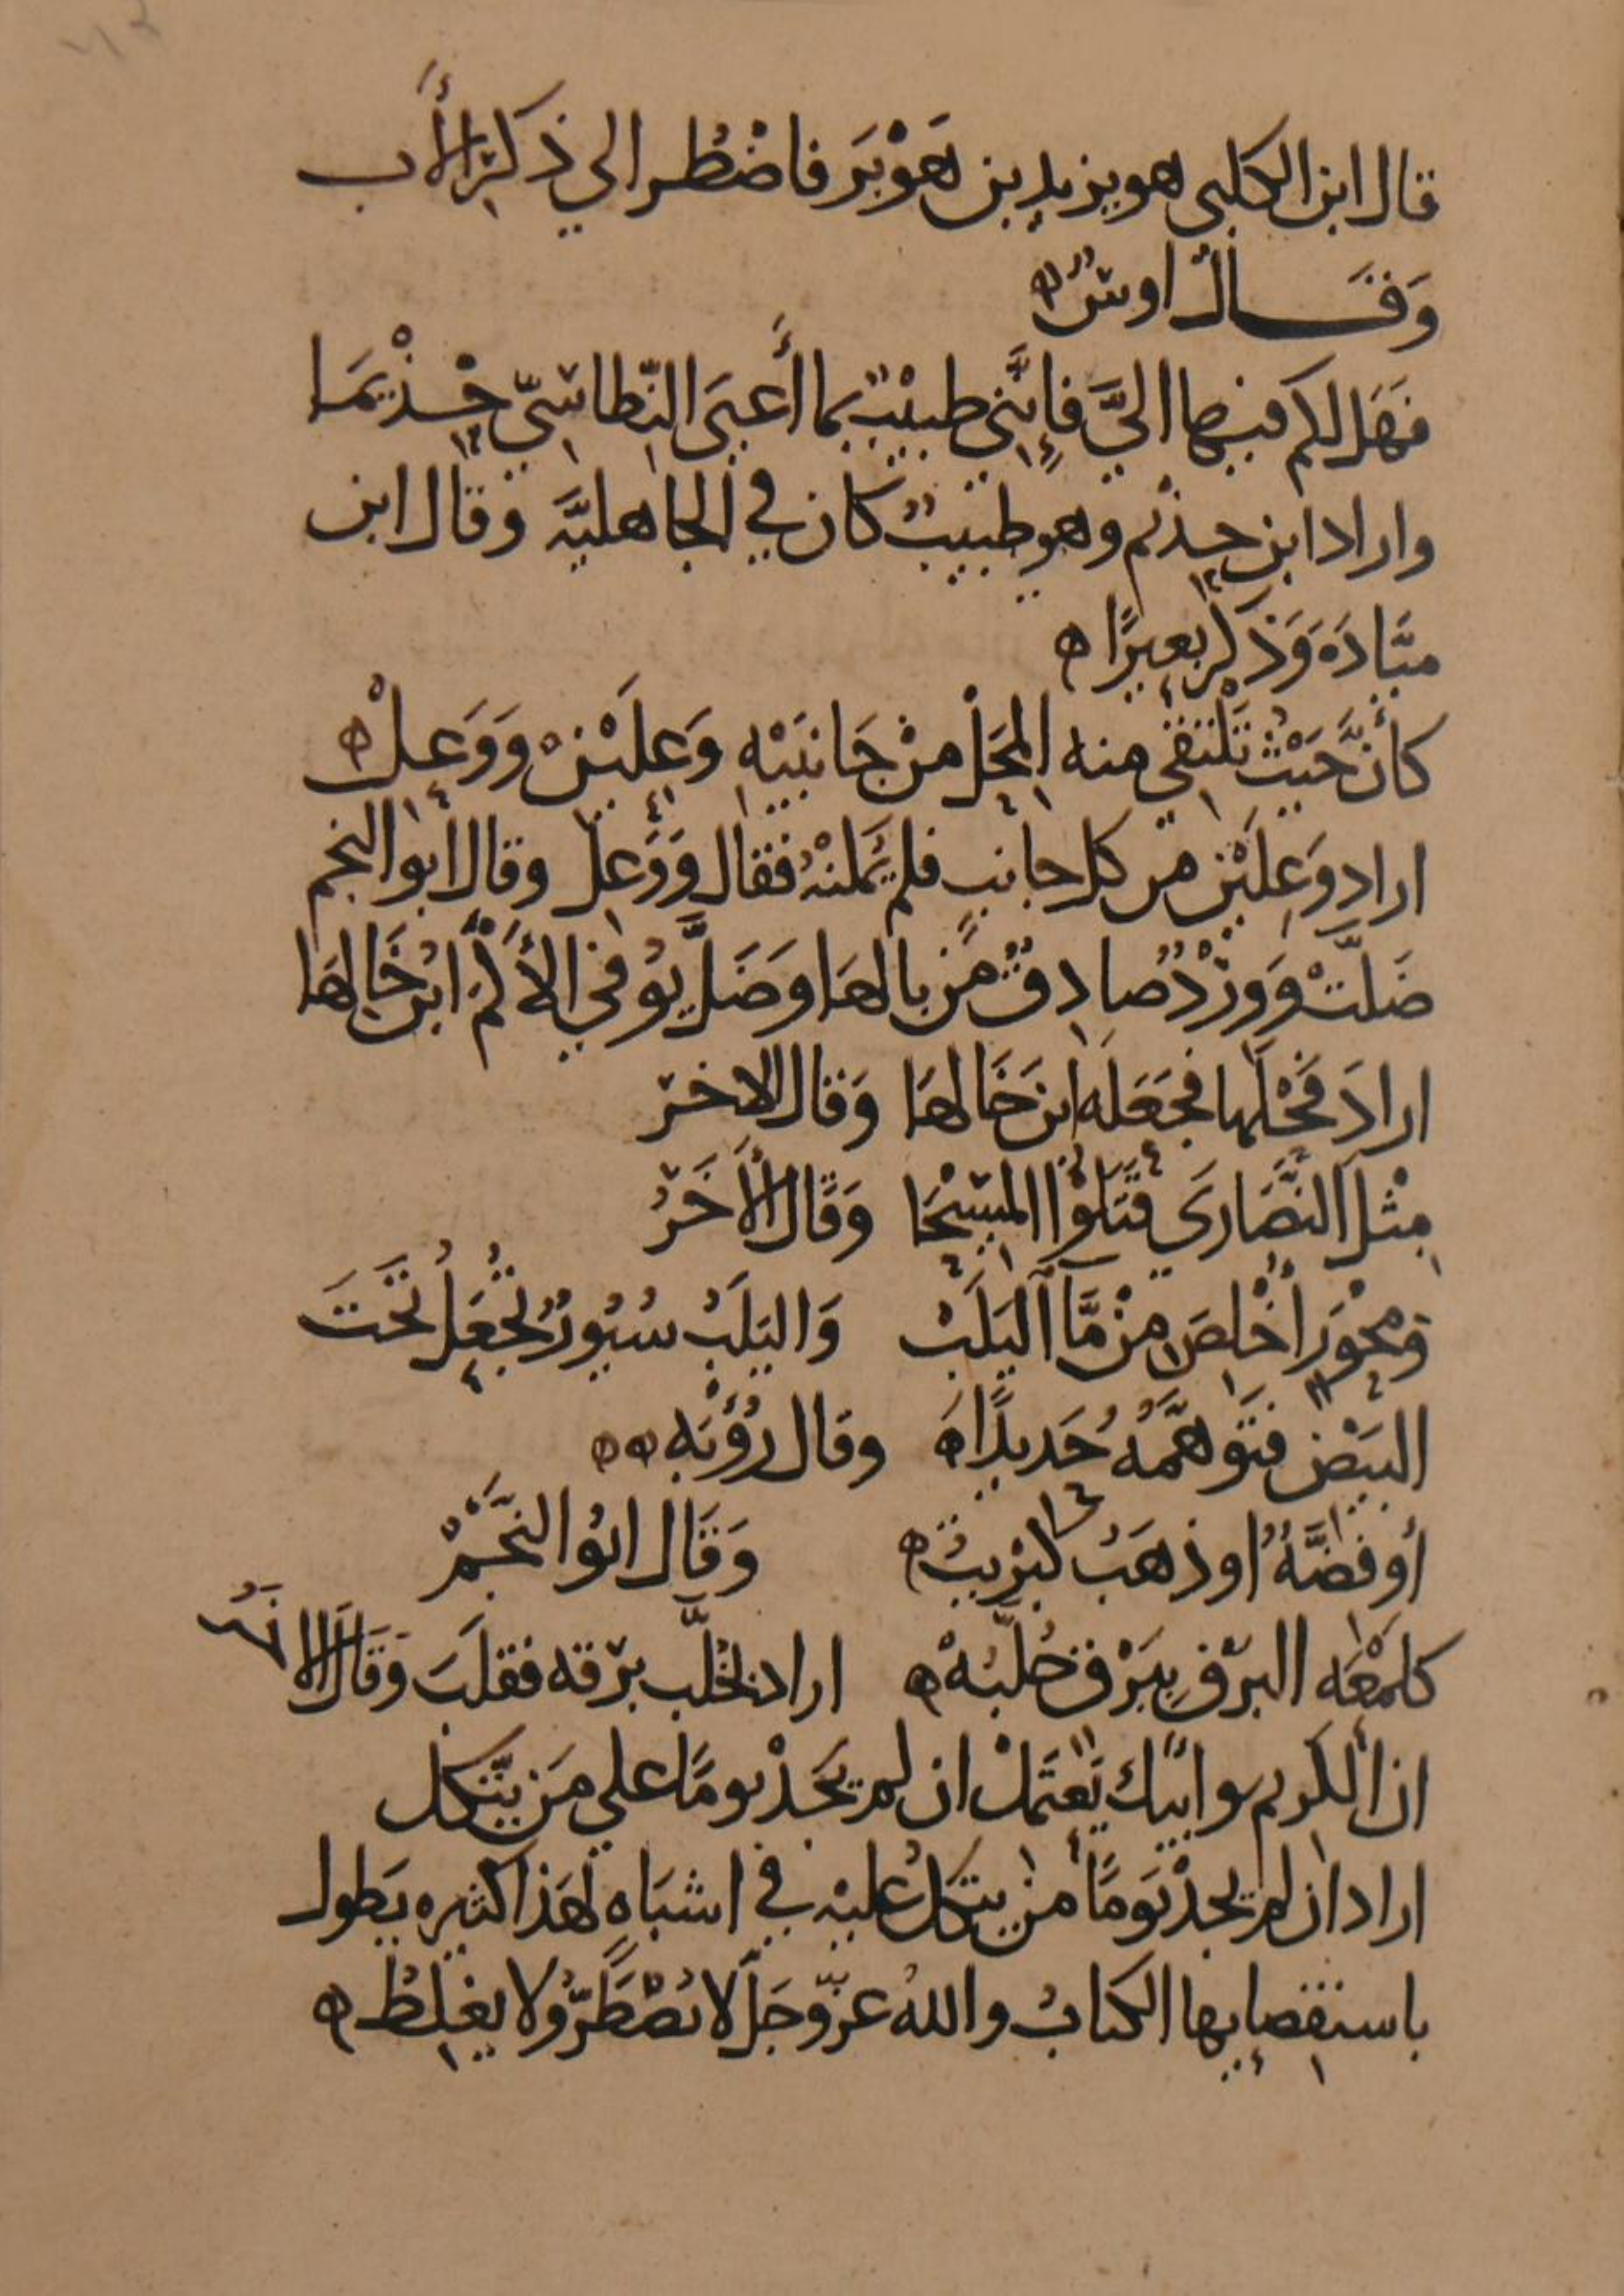 قال ابن الكلبى هو يزيد بن هَوْبَر فاضْطُر الي ذكر الأَب
وَقَــالَ اوسٌ ه
فهَل لكم فيها اليَّ فإِنَّني طبيبٌ بما أَعيَى النِّطاسِيّ حِذْيَمَا
واراد ابن حِذْيم وهو طبيبٌ كان في الجاهليَّة وقال ابن
ميَّادَة وَذكر بعيرًا ه
كأنَّ حَيْثُ تَلْتقي منه المُحُلْ مِنْ جَانبَيْهِ وَعِلَيْنِ وَوَعِلْ ه
اراد وَعِلَيْنِ من كل جانبٍ فلم يُمكنْهُ فقال وَوَعِل وقال أبو النجم
ضَلَّتْ وَوِرْدٌ صادِقٌ مِن بالهَا وَضَلَّ يُوفي الأُكْمَ ابنُ خَالِهَا
ارادَ فَحْلَها فجَعَله ابن خَالهَا وَقال الاخر
مِثْل النَّصَارَي قَتَلُوا المسِيْحَا وَقَال الأَخَرُ
وَمِحْوَر أُخْلِصَ مِنْ مَّاءِ اليَلَبْ وَاليَلَبُ سُيُورٌ تُجْعَلُ تَحْتَ
البَيْضِ فتَوَهَّمَهُ حَديدًا ه وقال رُؤْبَه ه ه
أو فِضَّةٌ او ذهَبٌ كِبْريتُ ه وَقَال ابُو النَّجْمْ
كلمْعَه البرْقِ بِبَرْقٍ خُلَّبُهْ ه اراد بخُلَّب برْقه فقلبَ وَقَال الاخر
ان الكريم وابيك يَعتَمِلْ ان لم يَجِدْ يومًا علي مَن يتَّكل
اراد ان لم يجدْ يَومًا من يتكلُ عليْه في اشبَاهٍ لهَذا كثيره يَطول
باستقصايِها الكتابُ والله عزّوجَلَّ لا يُضْطَرُّ ولا يغلِطُ ه